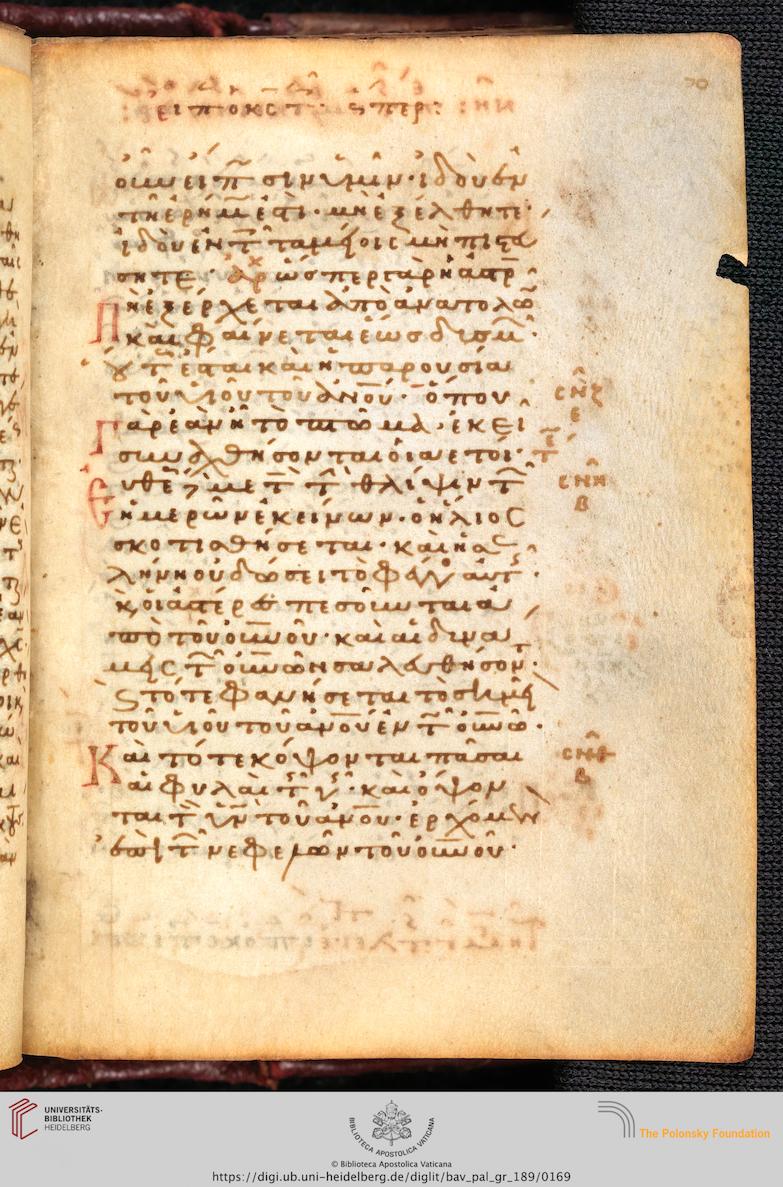 εἶπ ὁ κς τ · ὥσπερ:
οὖν εἴπ σιν ὑμῖν· ἰδοὺ ἐν
τῆ ἐρήμ ἐστὶ· μὴ ἐξέλθητε·
ἰδοὺ ἐν τ ταμείοις μὴ πιστεύ
σητε αρχ ὥσπερ γὰρ ἡ ἀστρ
πὴ ἐξέρχεται ἀπὸ ἀνατολῶ
καὶ φαίνεται ἕως δυσμ·
οὕτ ἔσται καὶ ἡ παρουσία
τοῦ υἱοῦ τοῦ ἀνου· ὅπου
γὰρ ἐὰν ἦ τὸ πτῶμα· ἐκεῖ
συναχθήσονται οἱ ἀετοί·
Εὐθέως μετ τ θλίψιν τ
ἡμερῶν ἐκείνων· ὁ ἥλιος
σκοτισθήσεται· καὶ ἡ σε
λήνη οὐ δώσει τὸ φέγγος αὐτ·
κ οἱ ἀστέρες πεσοῦνται ἀ
πὸ τοῦ οὐνοῦ· καὶ αἱ δυνά
μεις τ οὐνῶν σαλευθήσον·
κ τότε φανήσεται τὸ σημεῖ
τοῦ υἱοῦ τοῦ ἀνου ἐν τ οὐνῶ·
Καὶ τότε κόψονται πᾶσαι
αἱ φυλαὶ τῆς γῆς· καὶ ὄψον
ται τ υἱν τοῦ ἀνου· ἐρχόμεν
ἐπὶ τ νεφελῶν τοῦ οὐνοῦ·
σνζ
ε
σνη
β
σνθ
β
70
UNIVERSITÄTS-
BIBLIOTHEK
HEIDELBERG
BIBLIOTECA APOSTOLICA VATICANA
The Polonsky Foundation
© Biblioteca Apostolica Vaticana
https://digi.ub.uni-heidelberg.de/diglit/bav_pal_gr_189/0169